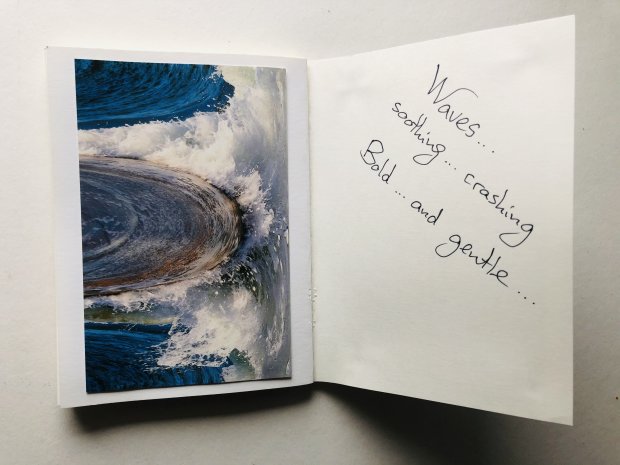 Waves...
soothing... crashing
Bold... and gentle...